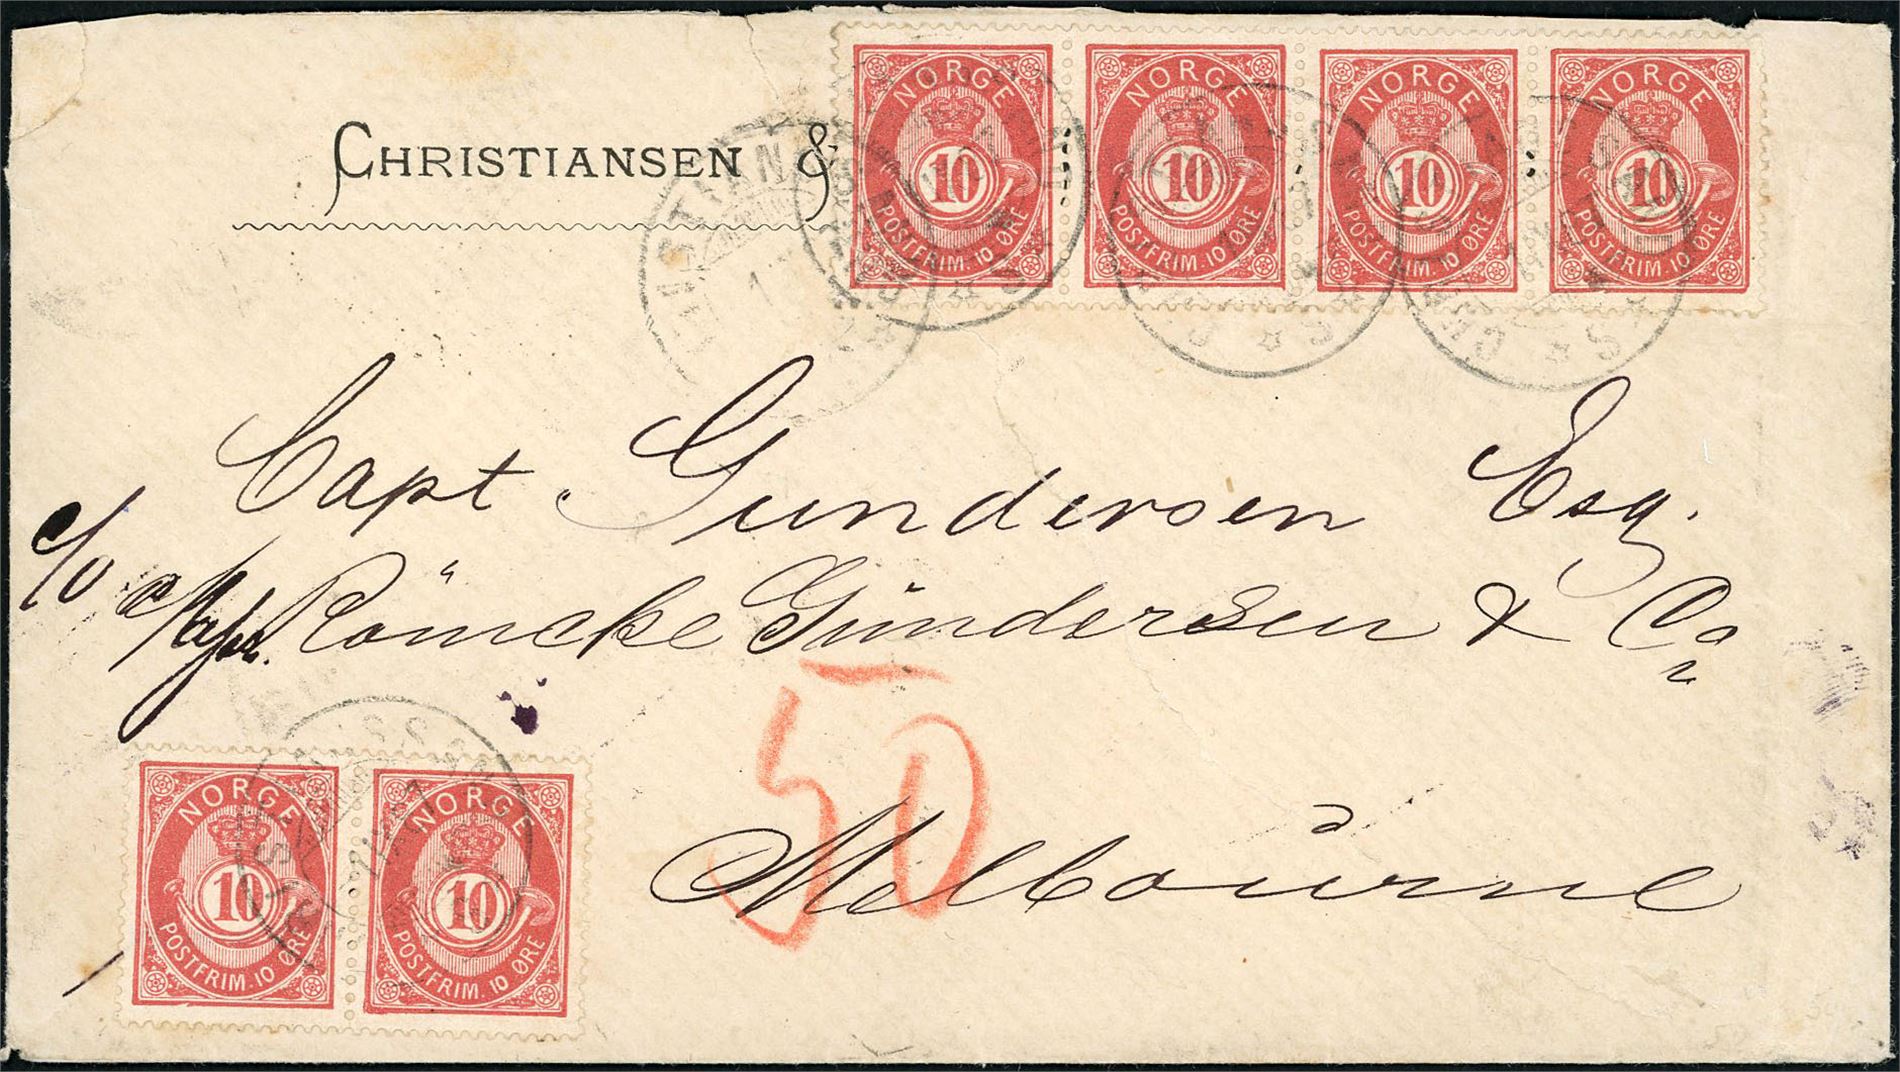 CHRISTIANSEN &
NORGE 10 POSTFRIM. 10 ØRE
NORGE 10 POSTFRIM. 10 ØRE
NORGE 10 POSTFRIM. 10 ØRE
NORGE 10 POSTFRIM. 10 ØRE
Capt Gundersen Esq.
c/o Römcke Gündersen & Co
50
Melboŭrne
NORGE 10 POSTFRIM. 10 ØRE
NORGE 10 POSTFRIM. 10 ØRE